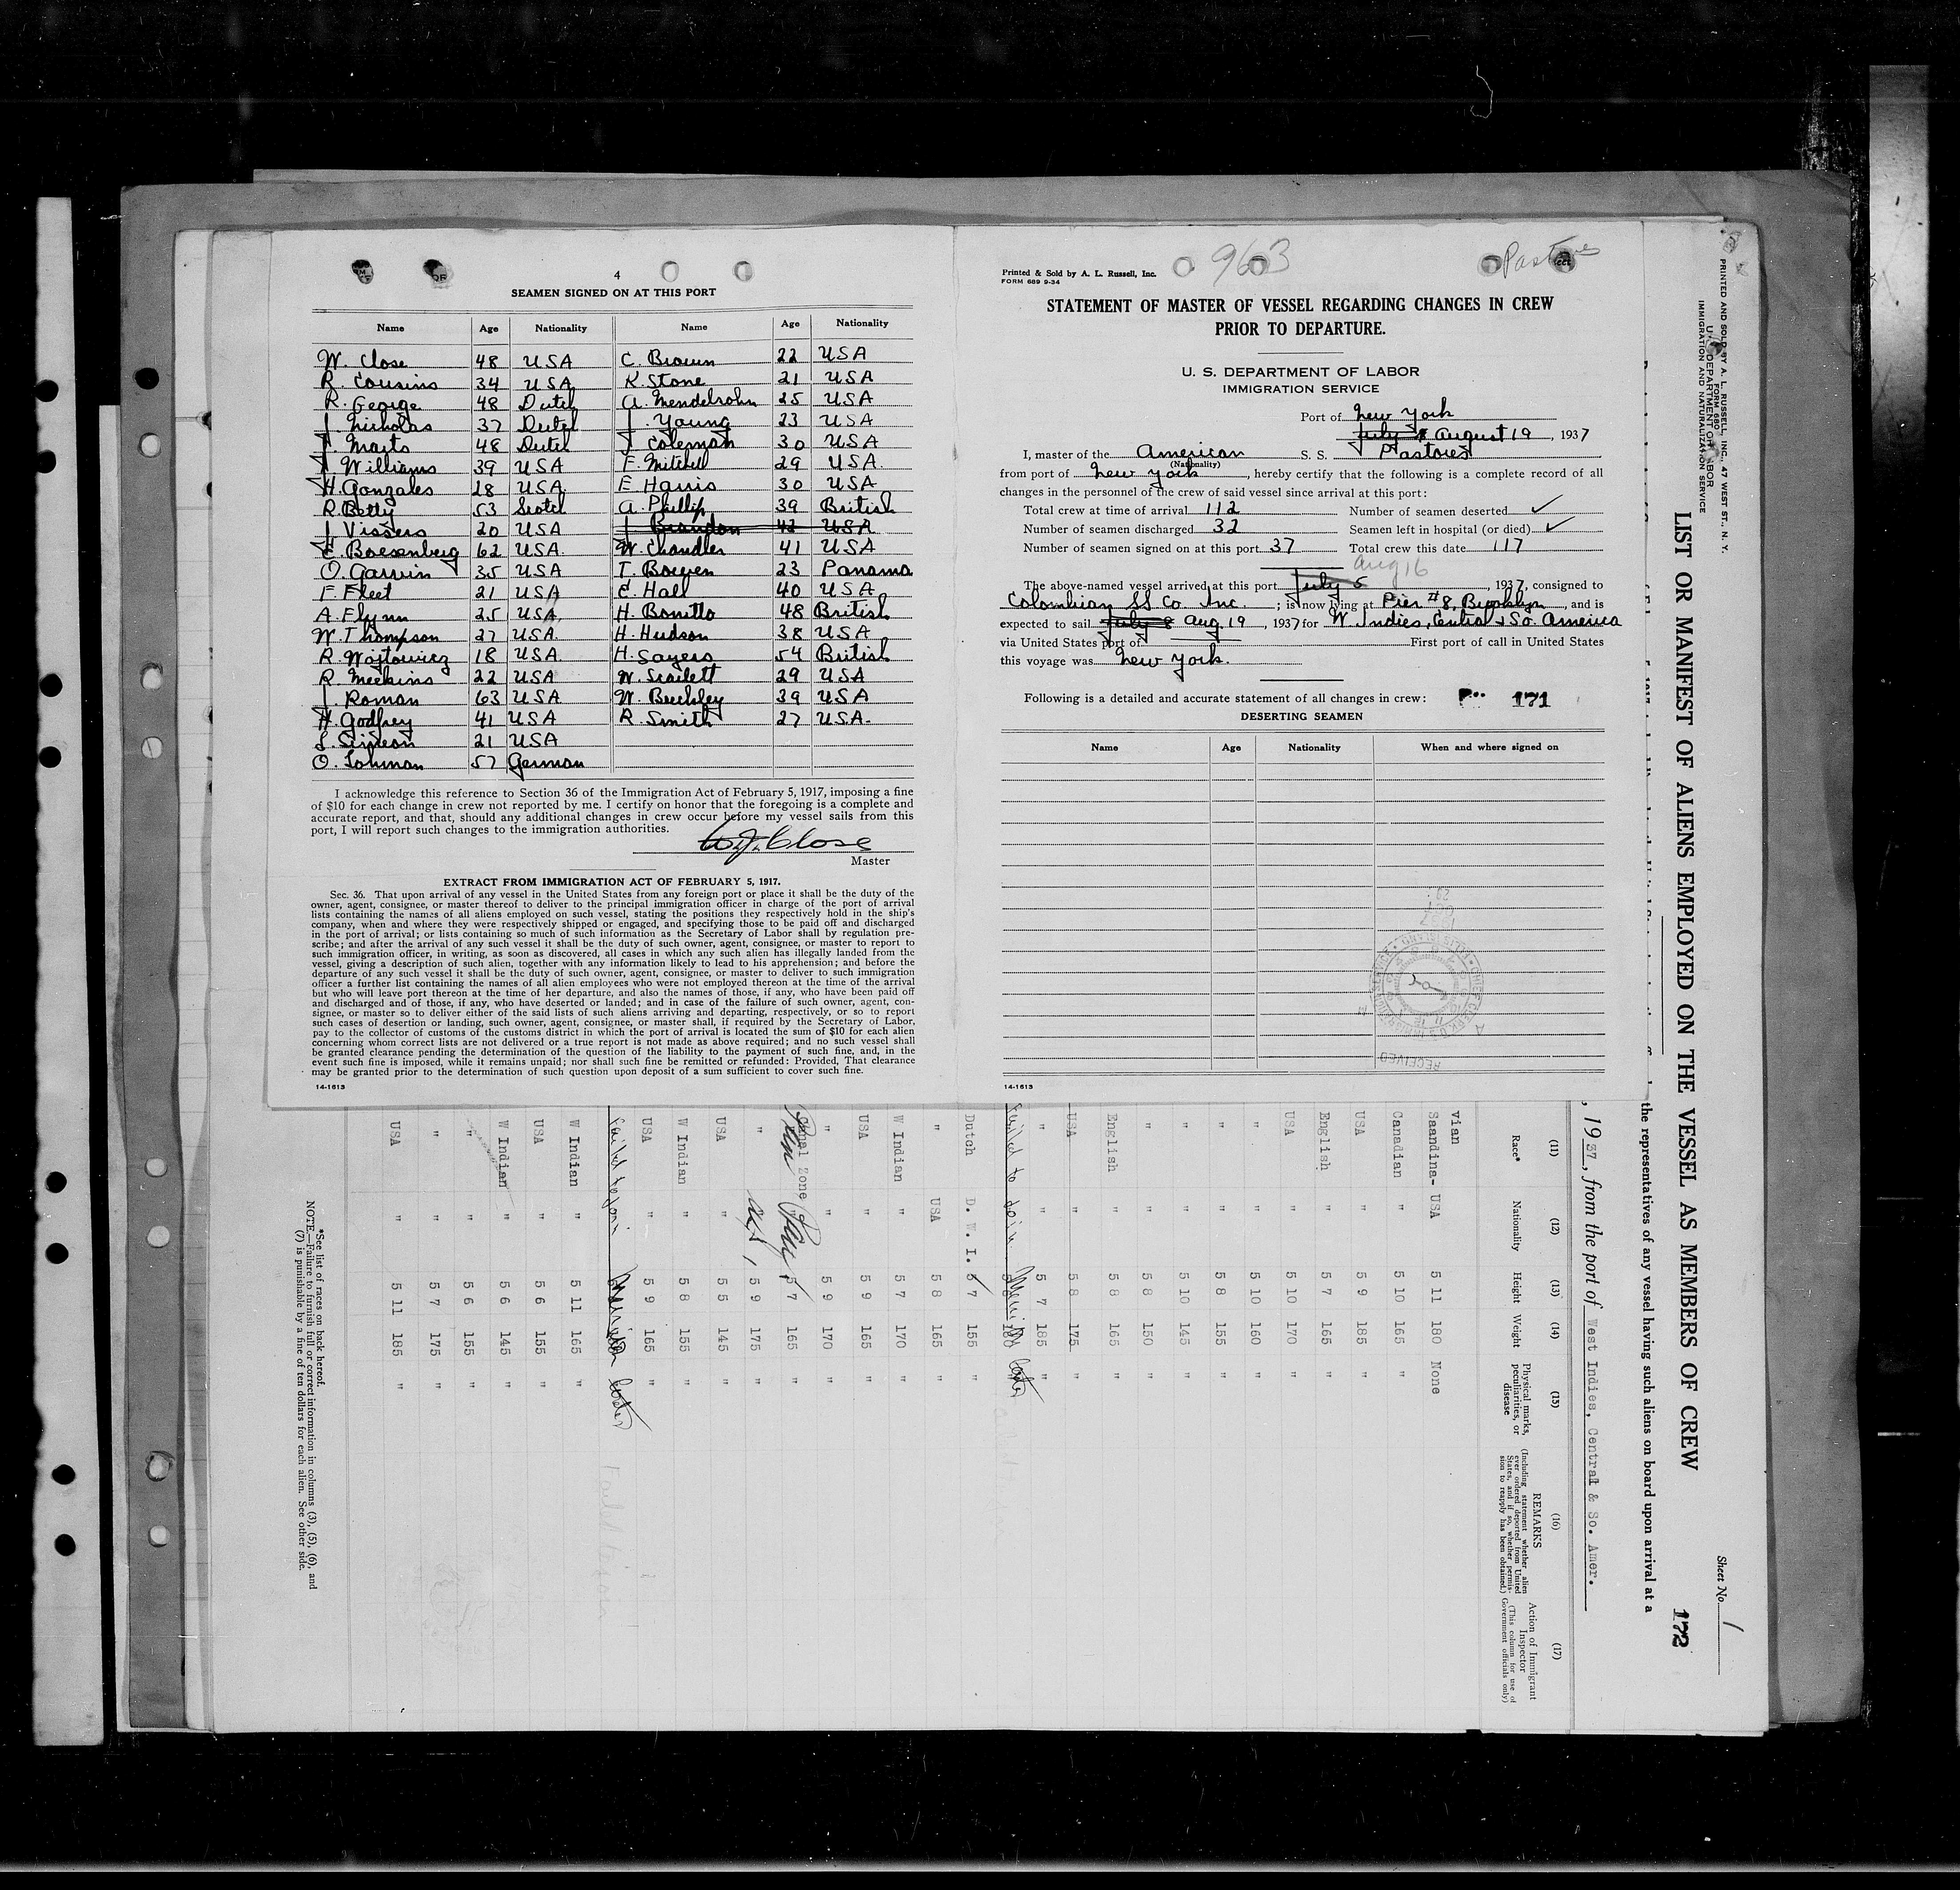 4
SEAMEN SIGNED ON AT THIS PORT
Name Age Nationality Name Age Nationality
W. Close 48 USA C. Brown 22 USA
R. Cousins 34 USA K. Stone 21 USA
R. George 48 Dutch A. Mendelsohn 25 USA
J. Nicholas 37 Dutch J. Young 23 USA
J. Maits 48 Dutch J. Coleman 30 USA
J. Williams 39 USA F. Mitchell 29 USA.
H. Gonzales 28 USA E Harris 30 USA
R. Betty 53 Scotch A. Phillip 39 British
J Vissers 20 USA J Brandon 42 USA
E. Boesenberg 62 USA. W. Chandler 41 USA
O. Garvin 35 USA T. Bowen 23 Panama
F. Fleet 21 USA E. Hall 40 USA
A. Flynn 25 USA H. Bonitto 48 British
W. Thompson 27 USA. H. Hudson 38 USA
R. Wojtowicz 18 USA. H. Sayers 54 British
R. Meekins 22 USA W. Scarlett 29 USA
J. Roman 63 USA W. Beckley 39 USA
H. Godfrey 41 USA R. Smith 27 USA.
S. Simeon 21 USA
O. Lohman 57 German
I acknowledge this reference to Section 36 of the Immigration Act of February 5, 1917, imposing a fine
of $10 for each change in crew not reported by me. I certify on honor that the foregoing is a complete and
accurate report, and that, should any additional changes in crew occur before my vessel sails from this
port, I will report such changes to the immigration authorities.
W.J. Close
Master
EXTRACT FROM IMMIGRATION ACT OF FEBRUARY 5, 1917.
Sec. 36. That upon arrival of any vessel in the United States from any foreign port or place it shall be the duty of the
owner, agent, consignee, or master thereof to deliver to the principal immigration officer in charge of the port of arrival
lists containing the names of all aliens employed on such vessel, stating the positions they respectively hold in the ship's
company, when and where they were respectively shipped or engaged, and specifying those to be paid off and discharged
in the port of arrival; or lists containing so much of such information as the Secretary of Labor shall by regulation pre-
scribe; and after the arrival of any such vessel it shall be the duty of such owner, agent, consignee, or master to report to
such immigration officer, in writing, as soon as discovered, all cases in which any such alien has illegally landed from the
vessel, giving a description of such alien, together with any information likely to lead to his apprehension; and before the
departure of any such vessel it shall be the duty of such owner, agent, consignee, or master to deliver to such immigration
officer a further list containing the names of all alien employees who were not employed thereon at the time of the arrival
but who will leave port thereon at the time of her departure, and also the names of those, if any, who have been paid off
and discharged and of those, if any, who have deserted or landed; and in case of the failure of such owner, agent, con-
signee, or master so to deliver either of the said lists of such aliens arriving and departing, respectively, or so to report
such cases of desertion or landing, such owner, agent, consignee, or master shall, if required by the Secretary of Labor,
pay to the collector of customs of the customs district in which the port of arrival is located the sum of $10 for each alien
concerning whom correct lists are not delivered or a true report is not made as above required; and no such vessel shall
be granted clearance pending the determination of the question of the liability to the payment of such fine, and, in the
event such fine is imposed, while it remains unpaid; nor shall such fine be remitted or refunded: Provided, That clearance
may be granted prior to the determination of such question upon deposit of a sum sufficient to cover such fine.
14-1613
963 Pastores
Printed & Sold by A. L. Russell, Inc.
FORM 689 9-34
STATEMENT OF MASTER OF VESSEL REGARDING CHANGES IN CREW
PRIOR TO DEPARTURE.
U. S. DEPARTMENT OF LABOR
IMMIGRATION SERVICE
Port of New York
July 8 August 19, 1937
I, master of the American S. S. Pastores
(Nationality)
from port of New York, hereby certify that the following is a complete record of all
changes in the personnel of the crew of said vessel since arrival at this port:
Total crew at time of arrival 112 Number of seamen deserted ✓
Number of seamen discharged 32 Seamen left in hospital (or died) ✓
Number of seamen signed on at this port 37 Total crew this date 117
Aug 16
The above-named vessel arrived at this port July 5, 1937, consigned to
Colombian SS Co Inc. ; is now lying at Pier #8, Brooklyn, and is
expected to sail July 8 Aug. 19, 1937 for W. Indies, Central & So. America
via United States port of First port of call in United States
this voyage was New York.
Following is a detailed and accurate statement of all changes in crew: 171
DESERTING SEAMEN
Name Age Nationality When and where signed on
RECEIVED
14-1613
PRINTED AND SOLD BY A. L. RUSSELL, INC., 47 WEST ST., N. Y.
FORM 680
U. S. DEPARTMENT OF LABOR
IMMIGRATION AND NATURALIZATION SERVICE
Sheet No. 1
LIST OR MANIFEST OF ALIENS EMPLOYED ON THE VESSEL AS MEMBERS OF CREW
172
the representatives of any vessel having such aliens on board upon arrival at a
, 1937, from the port of West Indies, Central & So. Amer.
(11) (12) (13) (14) (15) (16) (17)
Race* Nationality Height Weight Physical marks, peculiarities, or disease REMARKS (Including statement whether alien ever ordered deported from United States, and if so, whether permission to reapply has been obtained.) Action of Immigrant Inspector (This column for use of Government officials only)
Scandina-
vian USA 5 11 180 None
Canadian " 5 10 165 "
USA " 5 9 185 "
English " 5 7 165 "
USA " 5 10 170 "
" " 5 10 160 "
" " 5 8 155 "
" " 5 10 145 "
" " 5 8 150 "
English " 5 8 165 "
USA " 5 8 175 "
" " 5 7 185 "
Failed to join
Dutch D. W. I. 5 7 155 "
" USA 5 8 165 "
W Indian " 5 7 170 "
USA " 5 9 165 "
" " 5 9 170 "
Canal Zone 5 7 165 "
" 5 9 175 "
USA " 5 5 145 "
W Indian " 5 8 155 "
USA " 5 9 165 "
Failed to join
W Indian " 5 11 165 "
USA " 5 6 155 "
W Indian " 5 6 145 "
" " 5 6 155 "
" " 5 7 175 "
USA " 5 11 185 "
*See list of races on back hereof.
NOTE.—Failure to furnish full or correct information in columns (3), (5), (6), and
(7) is punishable by a fine of ten dollars for each alien. See other side.